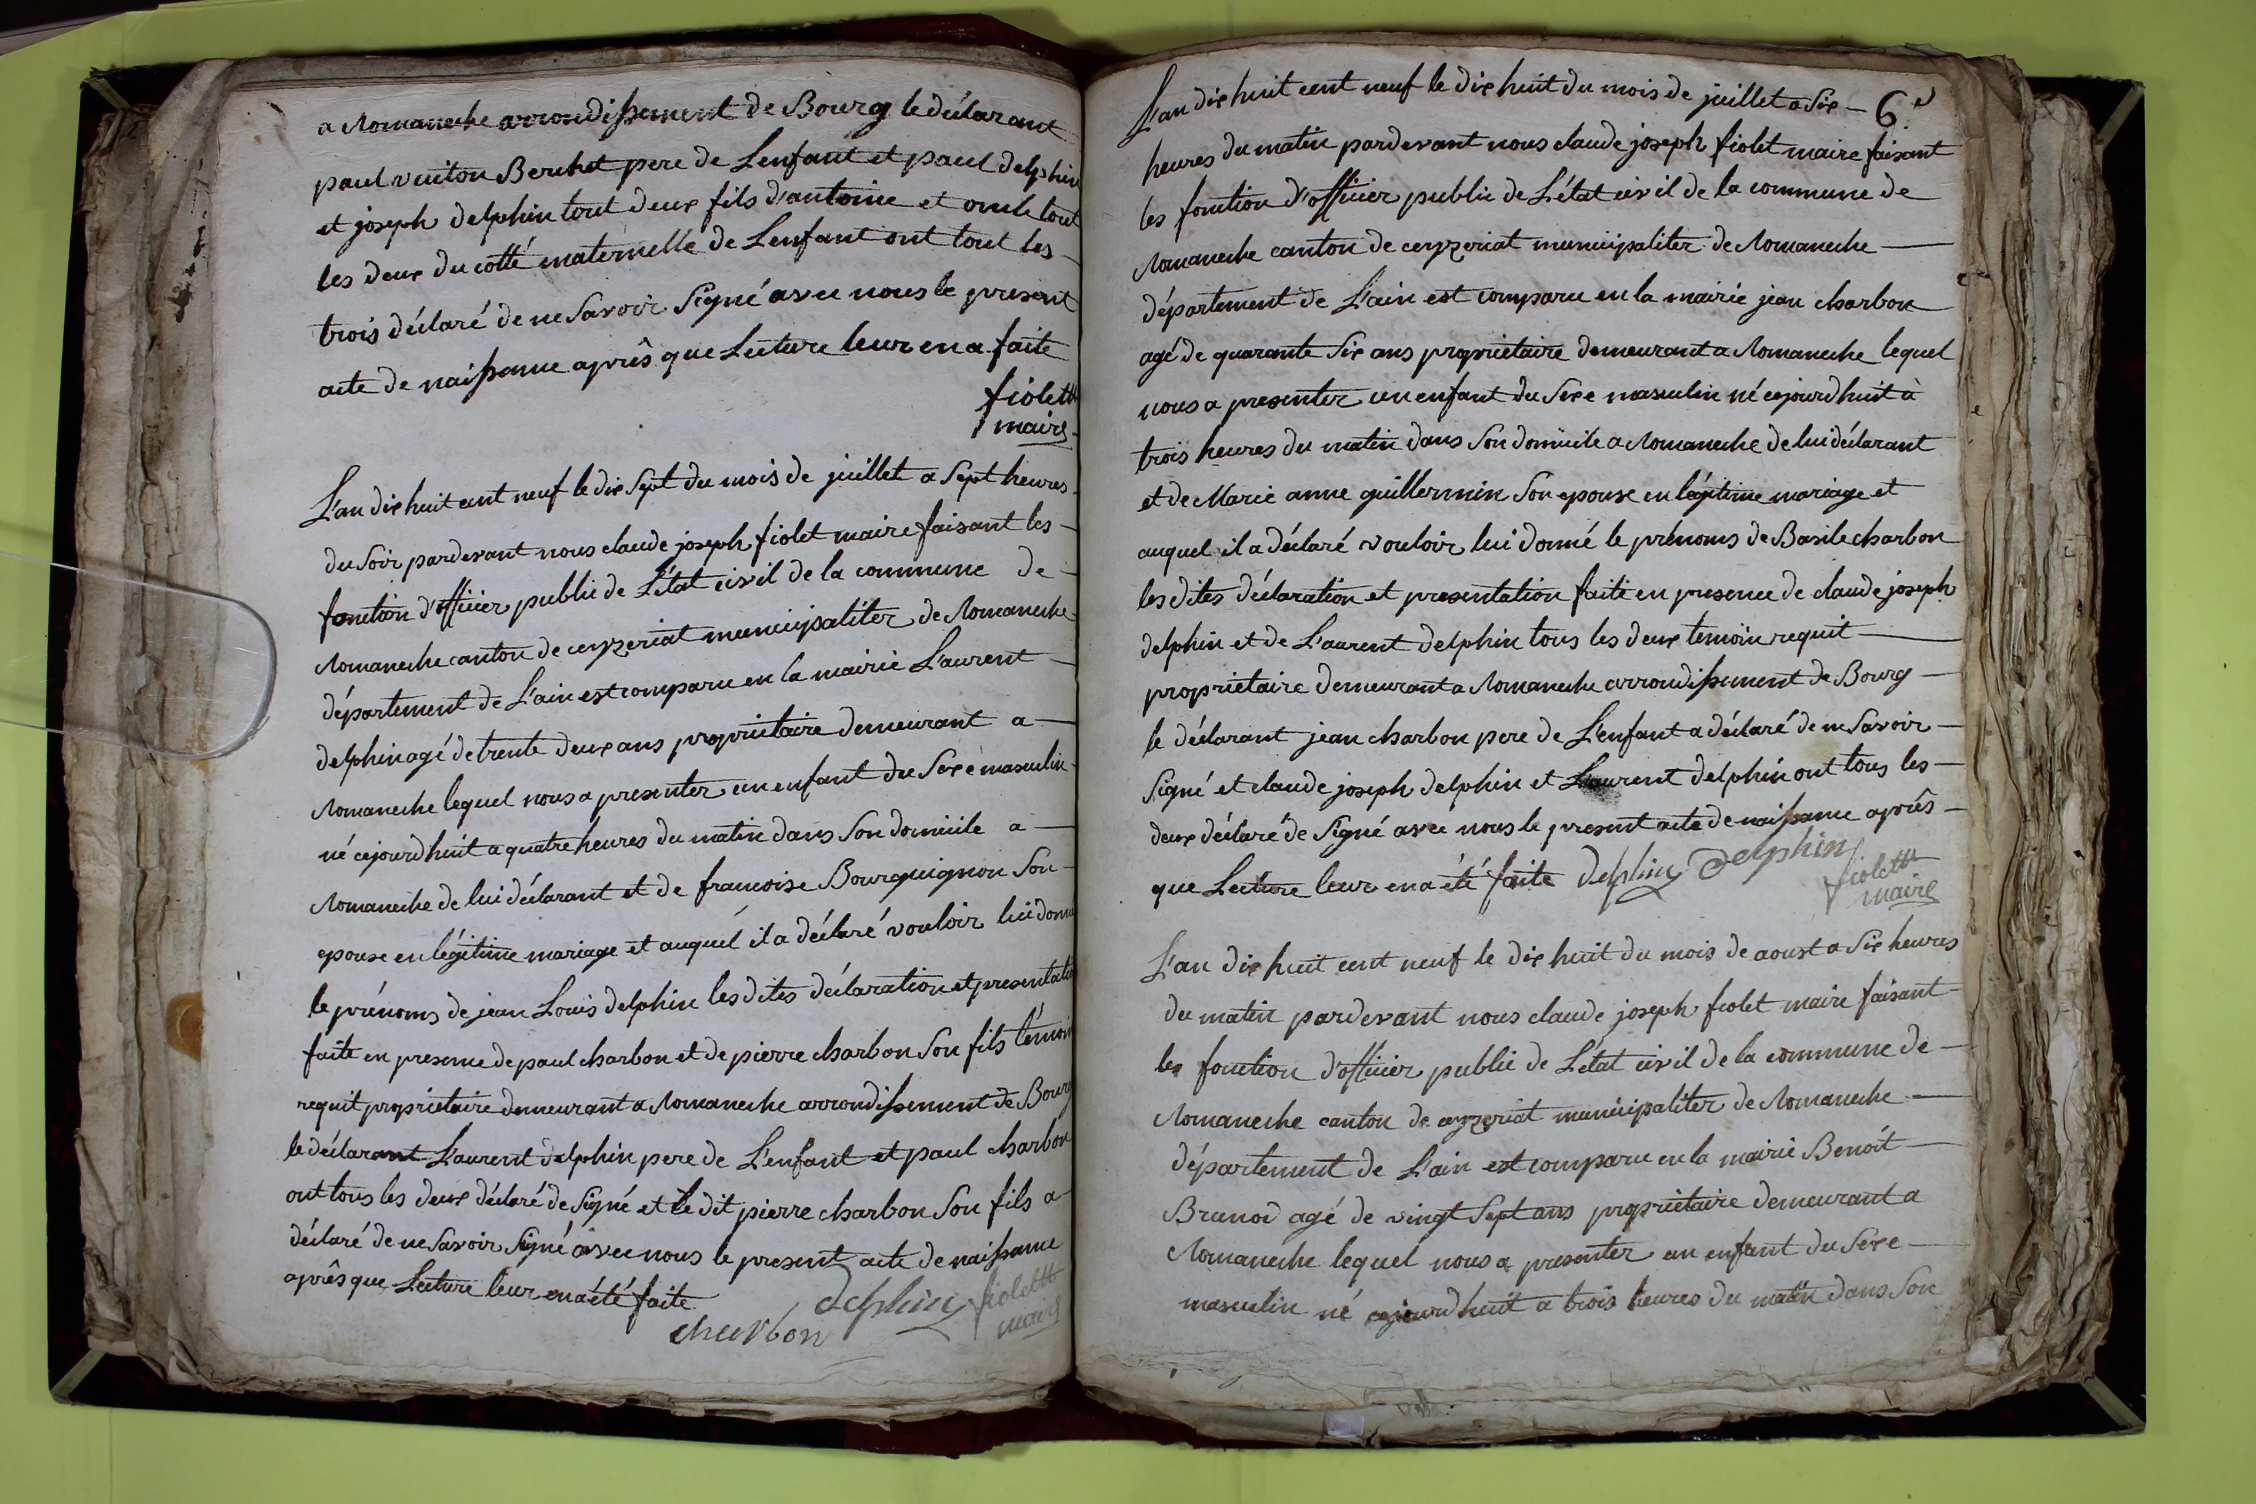 a Romaneche arrondissement de Bourg le déclarant
paul vuiton Berchet pere de Lenfant et paul delphin
et joseph delphin tout deux fils d'antoine et oncle tout
les deux du cotté maternelle de Lenfant ont tout les
trois déclaré de ne Savoir Signé avec nous le present
acte de naissance aprês que Lecture leur en a faite
fiolet
maire
L'an dix huit cent neuf le dix Sept du mois de juillet a Sept heures
du Soir pardevant nous claude joseph fiolet maire faisant les
fonction d'officier public de L'état civil de la commune de
Romaneche canton de ceyzeriat municipaliter de Romaneche
département de L'ain est comparu en la mairie Laurent
delphin agé de trente deux ans propriétaire demeurant a
Romaneche lequel nous a presenter un enfant du Sexe masculin
né cejourdhuit a quatre heures du matin dans Son domicile a
Romaneche de lui déclarant et de francoise Bourguignon Son
epouse en légitime mariage et auquel il a déclaré vouloir lui donné
le prénoms de jean Louis delphin les dites déclaration et presentation
faite en presence de paul charbon et de pierre charbon Son fils témoin
requit propriétaire demeurant a Romaneche arrondissement de Bourg
le déclarant Laurent delphin pere de L'enfant et paul charbon
ont tous les deux déclaré de Signé et le dit pierre charbon Son fils a
déclaré de ne Savoir Signé avec nous le present acte de naissance
aprês que Lecture leur en a été faite
charbon delphin fiolet
maire
L'an dix huit cent neuf le dix huit du mois de juillet a Six 6
heures du matin pardevant nous claude joseph fiolet maire faisant
les fonction d'officier public de L'état civil de la commune de
Romaneche canton de ceyzeriat municipaliter de Romaneche
département de L'ain est comparu en la mairie jean charbon
agé de quarante Six ans propriétaire demeurant a Romaneche lequel
nous a presenter un enfant du Sexe masculin né cejourdhuit à
trois heures du matin dans Son domicile a Romaneche de lui déclarant
et de Marie anne guillermin Son epouse en légitime mariage et
auquel il a déclaré vouloir lui donné le prénoms de Basile charbon
les dites déclaration et presentation faite en presence de claude joseph
delphin et de Laurent delphin tous les deux temoin requit
propriétaire demeurant a Romaneche arrondissement de Bourg
le déclarant jean charbon pere de L'enfant a déclaré de ne Savoir
Signé et claude joseph delphin et Laurent delphin ont tous les
deux déclaré de Signé avec nous le present acte de naissance aprês
que Lecture leur en a été faite delphin delphin fiolet
maire
L'an dix huit cent neuf le dix huit du mois de aoust a Six heures
du matin pardevant nous claude joseph fiolet maire faisant
les fonction d'officier public de L'état civil de la commune de
Romaneche canton de ceyzeriat municipaliter de Romaneche
département de L'ain est comparu en la mairie Benoit
Brunod agé de vingt Sept ans propriétaire demeurant a
Romaneche lequel nous a presenter un enfant du Sexe
masculin né cejourdhuit a trois heures du matin dans Son